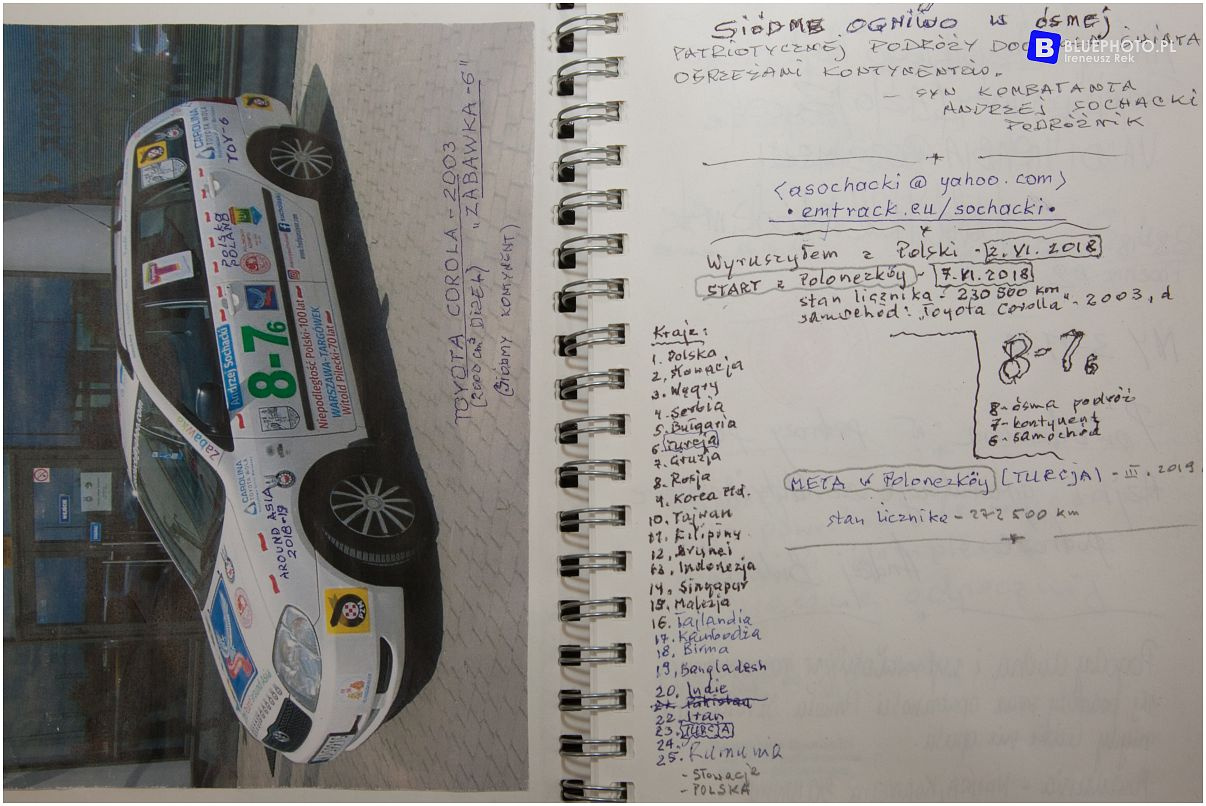 SIÓDME OGNIWO W ÓSMEJ
PATRIOTYCZNEJ PODRÓŻY DOOKOŁA ŚWIATA
OBRZEŻAMI KONTYNENTÓW.
— SYN KOMBATANTA
ANDRZEJ SOCHACKI
PODRÓŻNIK
BLUEPHOTO.PL
Ireneusz Rek
<asochacki @ yahoo.com>
• emtrack.eu/sochacki •
Wyruszyłem z Polski - 2.VI.2018
START z Polonezköy - 7.VI.2018
stan licznika - 230 500 km
samochód: "Toyota Corolla" - 2003, d
8-7 6
8 - ósma podróż
7 - kontynent
6 - samochód
META w Polonezköy (TURCJA) - III. 2019.
stan licznika - 272 500 km
Kraje:
1. Polska
2. Słowacja
3. Węgry
4. Serbia
5. Bułgaria
6. Turcja
7. Gruzja
8. Rosja
9. Korea Płd.
10. Tajwan
11. Filipiny
12. Brunei
13. Indonezja
14. Singapur
15. Malezja
16. Tajlandia
17. Kambodża
18. Birma
19. Bangladesh
20. Indie
21. Pakistan
22. Iran
23. TURCJA
24.
25. Rumunia
- Słowacja
- POLSKA
TOYOTA COROLA - 2003
(2000 cm³ DIZEL) "ZABAWKA - 6"
(SIÓDMY KONTYNENT)
CAROLINA
TOYOTA WOLA
TOY-6
POLSKA
POLAND
Andrzej Sochacki
8-7 6
Niepodległość Polski-100 lat
WARSZAWA-TARGÓWEK
Witold Pilecki-70 lat
Zabawka
CAROLINA
TOYOTA WOLA
AROUND ASIA
2018-19
PZM